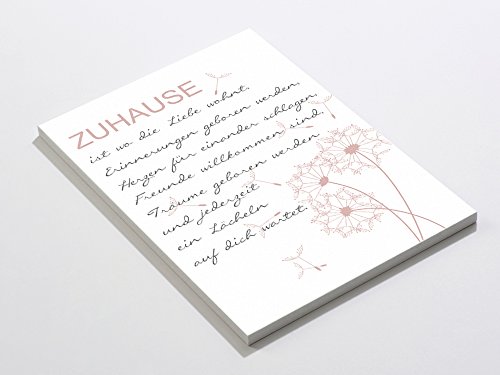 ZUHAUSE
ist wo die Liebe wohnt,
Erinnerungen geboren werden,
Herzen für einander schlagen,
Freunde willkommen sind,
Träume geboren werden
und jederzeit
ein Lächeln
auf dich wartet.